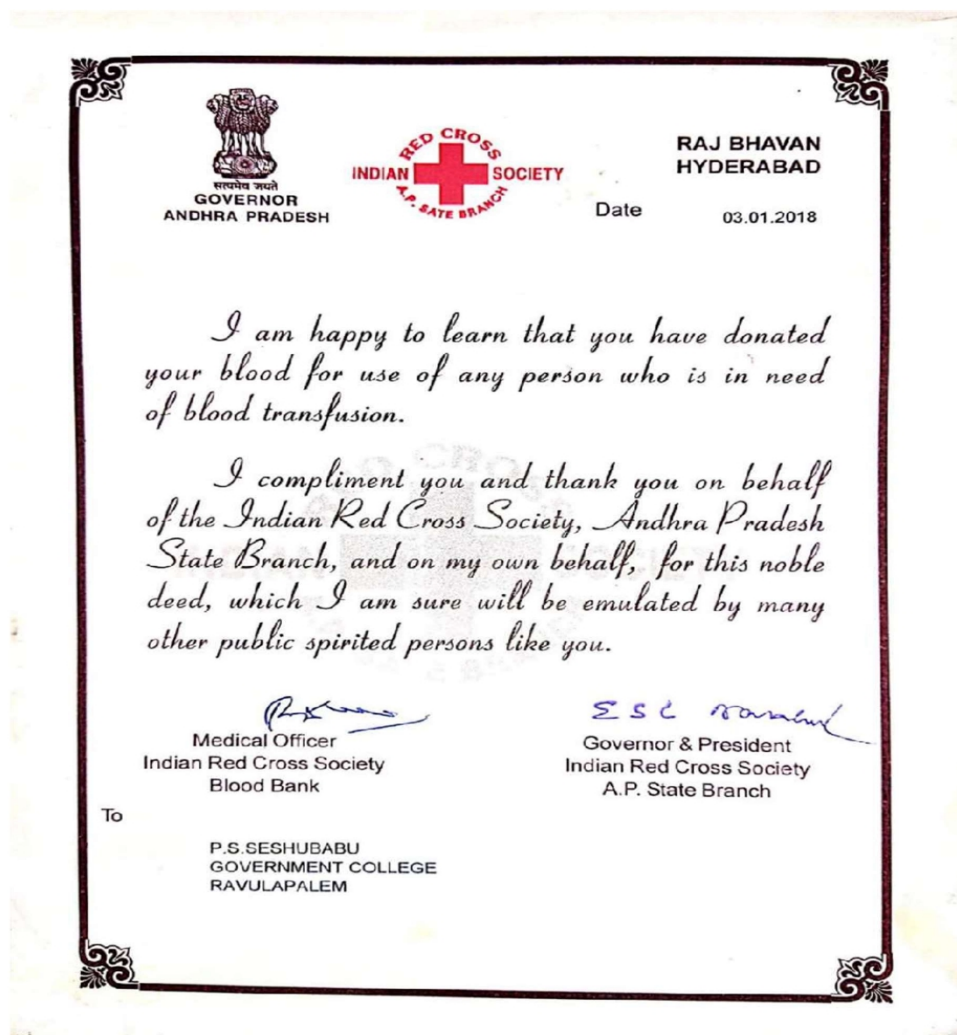 सत्यमेव जयते
GOVERNOR
ANDHRA PRADESH
INDIAN RED CROSS SOCIETY
A.P. SATE BRANCH
RAJ BHAVAN
HYDERABAD
Date 03.01.2018
I am happy to learn that you have donated
your blood for use of any person who is in need
of blood transfusion.
I compliment you and thank you on behalf
of the Indian Red Cross Society, Andhra Pradesh
State Branch, and on my own behalf, for this noble
deed, which I am sure will be emulated by many
other public spirited persons like you.
E S L
Medical Officer
Indian Red Cross Society
Blood Bank
Governor & President
Indian Red Cross Society
A.P. State Branch
To
P.S.SESHUBABU
GOVERNMENT COLLEGE
RAVULAPALEM